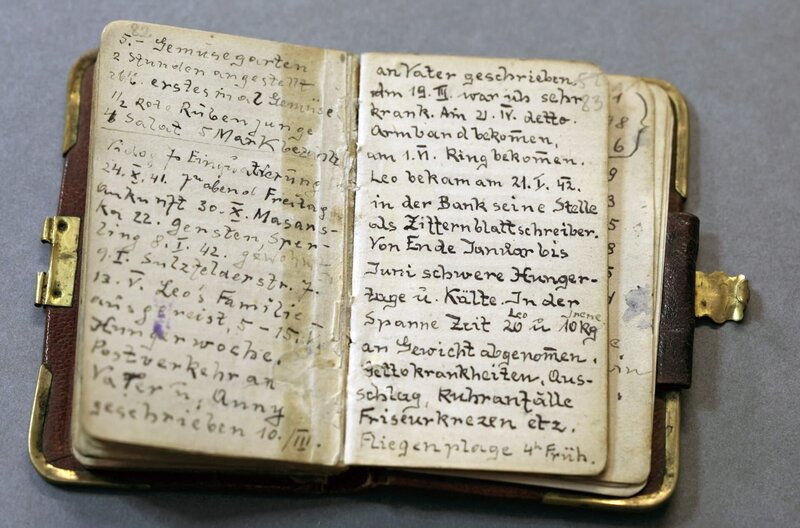 82.
5.- Gemüsegarten
2 Stunden angestellt
26/6. erstes mal Gemüse
1/2 Rote Rüben junge
4 Salat 5 Mark bezahlt
24.X.41. abend Freitag
Ankunft 30.X. Masans-
ka 22. Gersten, Sper-
ling 8.I.42. gewohnt
9.I. Sulzfelderstr. 7.
13.V. Leo's Familie
ausgereist, 5-15.V.
Hungerwoche.
Postverkehr an
Vater u. Anny
geschrieben 10./III.
an Vater geschrieben
Am 19.III. war ich sehr
krank. Am 21.IV. detto.
Armband bekom̄en,
am 1.VI. Ring bekom̄en.
Leo bekam am 21.V.42.
in der Bank seine Stelle
als Zitternblattschreiber.
Von Ende Januar bis
Juni schwere Hunger-
tage u. Kälte. In der
Spanne Zeit Leo 20 u Irene 10 kg
an Gewicht abgenom̄en.
Gettokrankheiten, Aus-
schlag, Ruhranfälle
Friseurkrezen etz.
Fliegenplage 4h Früh.